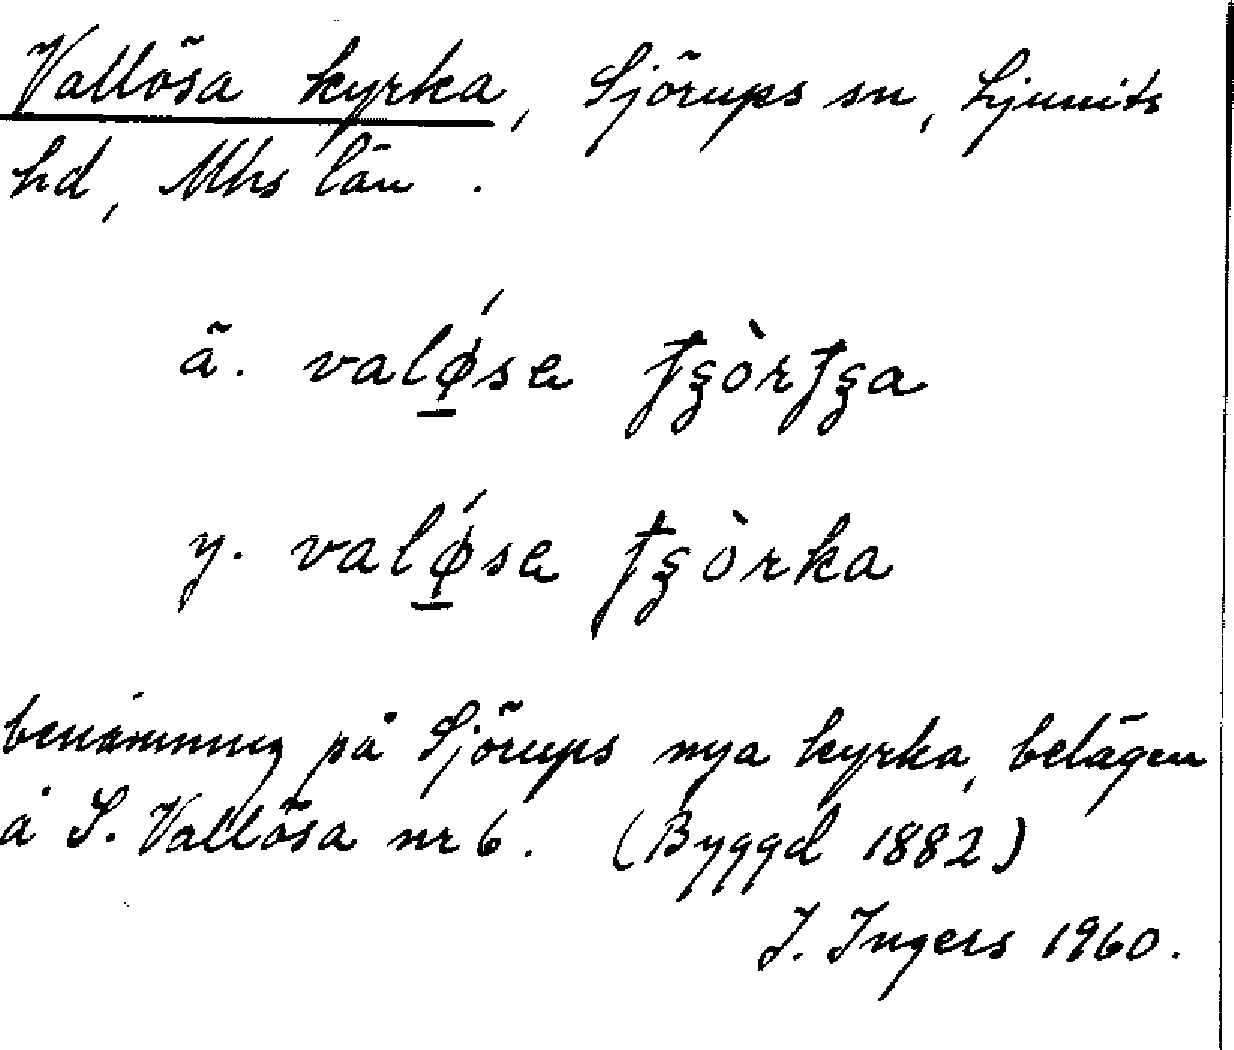 Vallösa kyrka, Sjörups sn, Ljunits
hd, Mhs län.
ä. valǿ̱sa ꞙʒòrꞙʒa
y. valǿ̱sa ꞙʒòrka
benämning på Sjörups nya kyrka, belägen
å S. Vallösa nr 6. (Byggd 1882)
I. Ingers 1960.